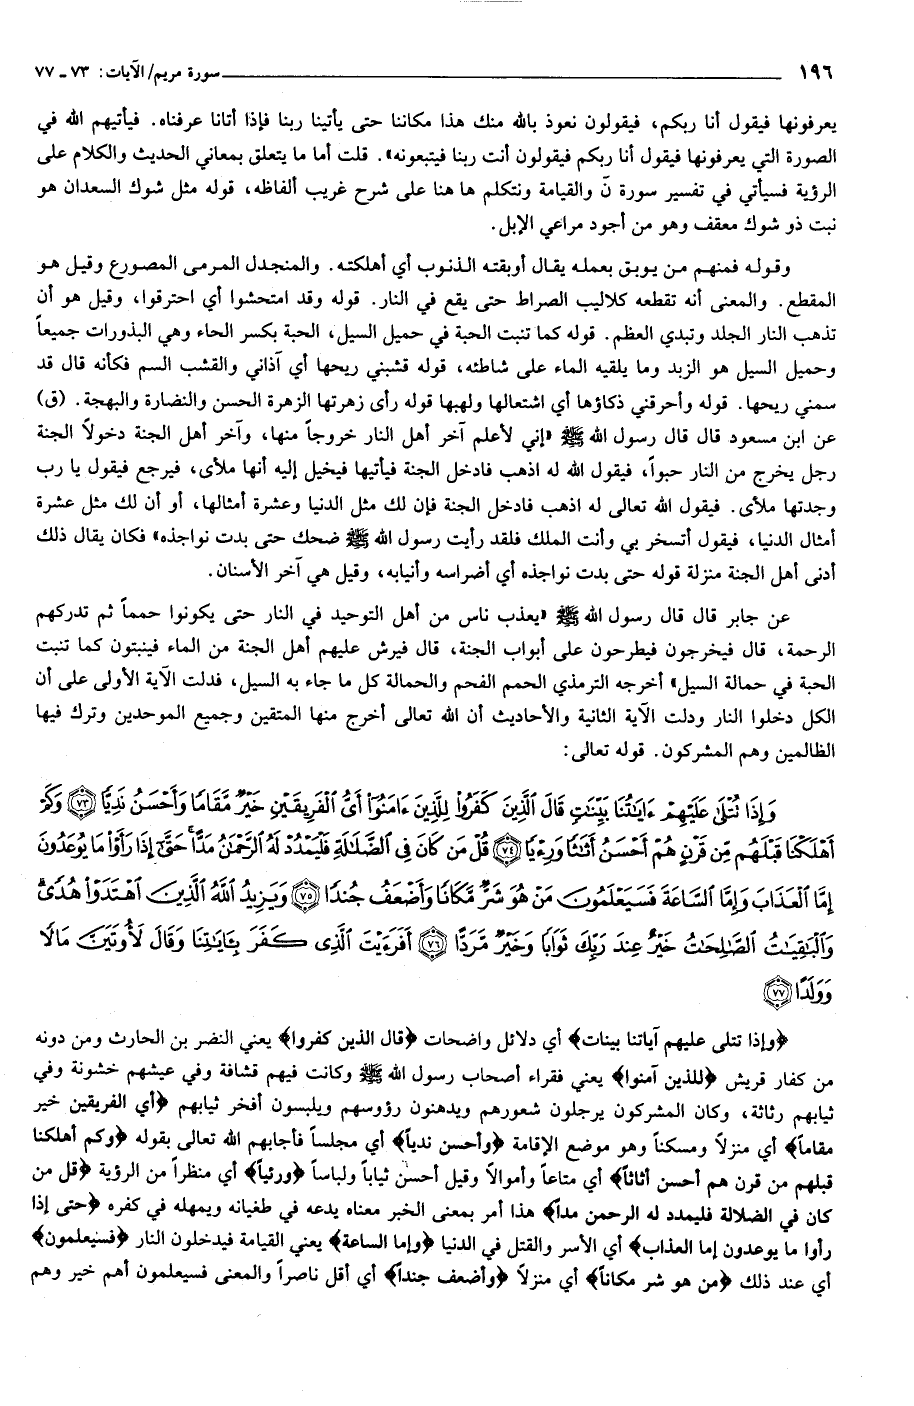 ١٩٦ سورة مريم/ الآيات: ٧٣ ـ ٧٧
يعرفونها فيقول أنا ربكم، فيقولون نعوذ بالله منك هذا مكاننا حتى يأتينا ربنا فإذا أتانا عرفناه. فيأتيهم الله في
الصورة التي يعرفونها فيقول أنا ربكم فيقولون أنت ربنا فيتبعونه». قلت أما ما يتعلق بمعاني الحديث والكلام على
الرؤية فسيأتي في تفسير سورة نَ والقيامة ونتكلم ها هنا على شرح غريب ألفاظه، قوله مثل شوك السعدان هو
نبت ذو شوك معقف وهو من أجود مراعي الإبل.
وقوله فمنهم من يوبق بعمله يقال أوبقته الذنوب أي أهلكته. والمنجدل المرمى المصورع وقيل هو
المقطع. والمعنى أنه تقطعه كلاليب الصراط حتى يقع في النار. قوله وقد امتحشوا أي احترقوا، وقيل هو أن
تذهب النار الجلد وتبدي العظم. قوله كما تنبت الحبة في حميل السيل، الحبة بكسر الحاء وهي البذورات جميعاً
وحميل السيل هو الزبد وما يلقيه الماء على شاطئه، قوله قشبني ريحها أي آذاني والقشب السم فكأنه قال قد
سمني ريحها. قوله وأحرقني ذكاؤها أي اشتعالها ولهبها قوله رأى زهرتها الزهرة الحسن والنضارة والبهجة. (ق)
عن ابن مسعود قال قال رسول الله ﷺ «إني لأعلم آخر أهل النار خروجاً منها، وآخر أهل الجنة دخولاً الجنة
رجل يخرج من النار حبواً، فيقول الله له اذهب فادخل الجنة فيأتيها فيخيل إليه أنها ملأى، فيرجع فيقول يا رب
وجدتها ملأى. فيقول الله تعالى له اذهب فادخل الجنة فإن لك مثل الدنيا وعشرة أمثالها، أو أن لك مثل عشرة
أمثال الدنيا، فيقول أتسخر بي وأنت الملك فلقد رأيت رسول الله ﷺ ضحك حتى بدت نواجذه» فكان يقال ذلك
أدنى أهل الجنة منزلة قوله حتى بدت نواجذه أي أضراسه وأنيابه، وقيل هي آخر الأسنان.
عن جابر قال قال رسول الله ﷺ «يعذب ناس من أهل التوحيد في النار حتى يكونوا حمماً ثم تدركهم
الرحمة، قال فيخرجون فيطرحون على أبواب الجنة، قال فيرش عليهم أهل الجنة من الماء فينبتون كما تنبت
الحبة في حمالة السيل» أخرجه الترمذي الحمم الفحم والحمالة كل ما جاء به السيل، فدلت الآية الأولى على أن
الكل دخلوا النار ودلت الآية الثانية والأحاديث أن الله تعالى أخرج منها المتقين وجميع الموحدين وترك فيها
الظالمين وهم المشركون. قوله تعالى:
وَإِذَا تُتْلَىٰ عَلَيْهِمْ ءَايَٰتُنَا بَيِّنَٰتٍ قَالَ ٱلَّذِينَ كَفَرُوا۟ لِلَّذِينَ ءَامَنُوٓا۟ أَىُّ ٱلْفَرِيقَيْنِ خَيْرٌ مَّقَامًا وَأَحْسَنُ نَدِيًّا ﴿٧٣﴾ وَكَمْ
أَهْلَكْنَا قَبْلَهُم مِّن قَرْنٍ هُمْ أَحْسَنُ أَثَٰثًا وَرِءْيًا ﴿٧٤﴾ قُلْ مَن كَانَ فِى ٱلضَّلَٰلَةِ فَلْيَمْدُدْ لَهُ ٱلرَّحْمَٰنُ مَدًّا ۚ حَتَّىٰٓ إِذَا رَأَوْا۟ مَا يُوعَدُونَ
إِمَّا ٱلْعَذَابَ وَإِمَّا ٱلسَّاعَةَ فَسَيَعْلَمُونَ مَنْ هُوَ شَرٌّ مَّكَانًا وَأَضْعَفُ جُندًا ﴿٧٥﴾ وَيَزِيدُ ٱللَّهُ ٱلَّذِينَ ٱهْتَدَوْا۟ هُدًى ۗ
وَٱلْبَٰقِيَٰتُ ٱلصَّٰلِحَٰتُ خَيْرٌ عِندَ رَبِّكَ ثَوَابًا وَخَيْرٌ مَّرَدًّا ﴿٧٦﴾ أَفَرَءَيْتَ ٱلَّذِى كَفَرَ بِـَٔايَٰتِنَا وَقَالَ لَأُوتَيَنَّ مَالًا
وَوَلَدًا ﴿٧٧﴾
﴿وإذا تتلى عليهم آياتنا بينات﴾ أي دلائل واضحات ﴿قال الذين كفروا﴾ يعني النضر بن الحارث ومن دونه
من كفار قريش ﴿للذين آمنوا﴾ يعني فقراء أصحاب رسول الله ﷺ وكانت فيهم قشافة وفي عيشهم خشونة وفي
ثيابهم رثاثة، وكان المشركون يرجلون شعورهم ويدهنون رؤوسهم ويلبسون أفخر ثيابهم ﴿أي الفريقين خير
مقاماً﴾ أي منزلاً ومسكناً وهو موضع الإقامة ﴿وأحسن ندياً﴾ أي مجلساً فأجابهم الله تعالى بقوله ﴿وكم أهلكنا
قبلهم من قرن هم أحسن أثاثاً﴾ أي متاعاً وأموالاً وقيل أحسن ثياباً ولباساً ﴿ورئياً﴾ أي منظراً من الرؤية ﴿قل من
كان في الضلالة فليمدد له الرحمن مداً﴾ هذا أمر بمعنى الخبر معناه يدعه في طغيانه ويمهله في كفره ﴿حتى إذا
رأوا ما يوعدون إما العذاب﴾ أي الأسر والقتل في الدنيا ﴿وإما الساعة﴾ يعني القيامة فيدخلون النار ﴿فسيعلمون﴾
أي عند ذلك ﴿من هو شر مكاناً﴾ أي منزلاً ﴿وأضعف جنداً﴾ أي أقل ناصراً والمعنى فسيعلمون أهم خير وهم